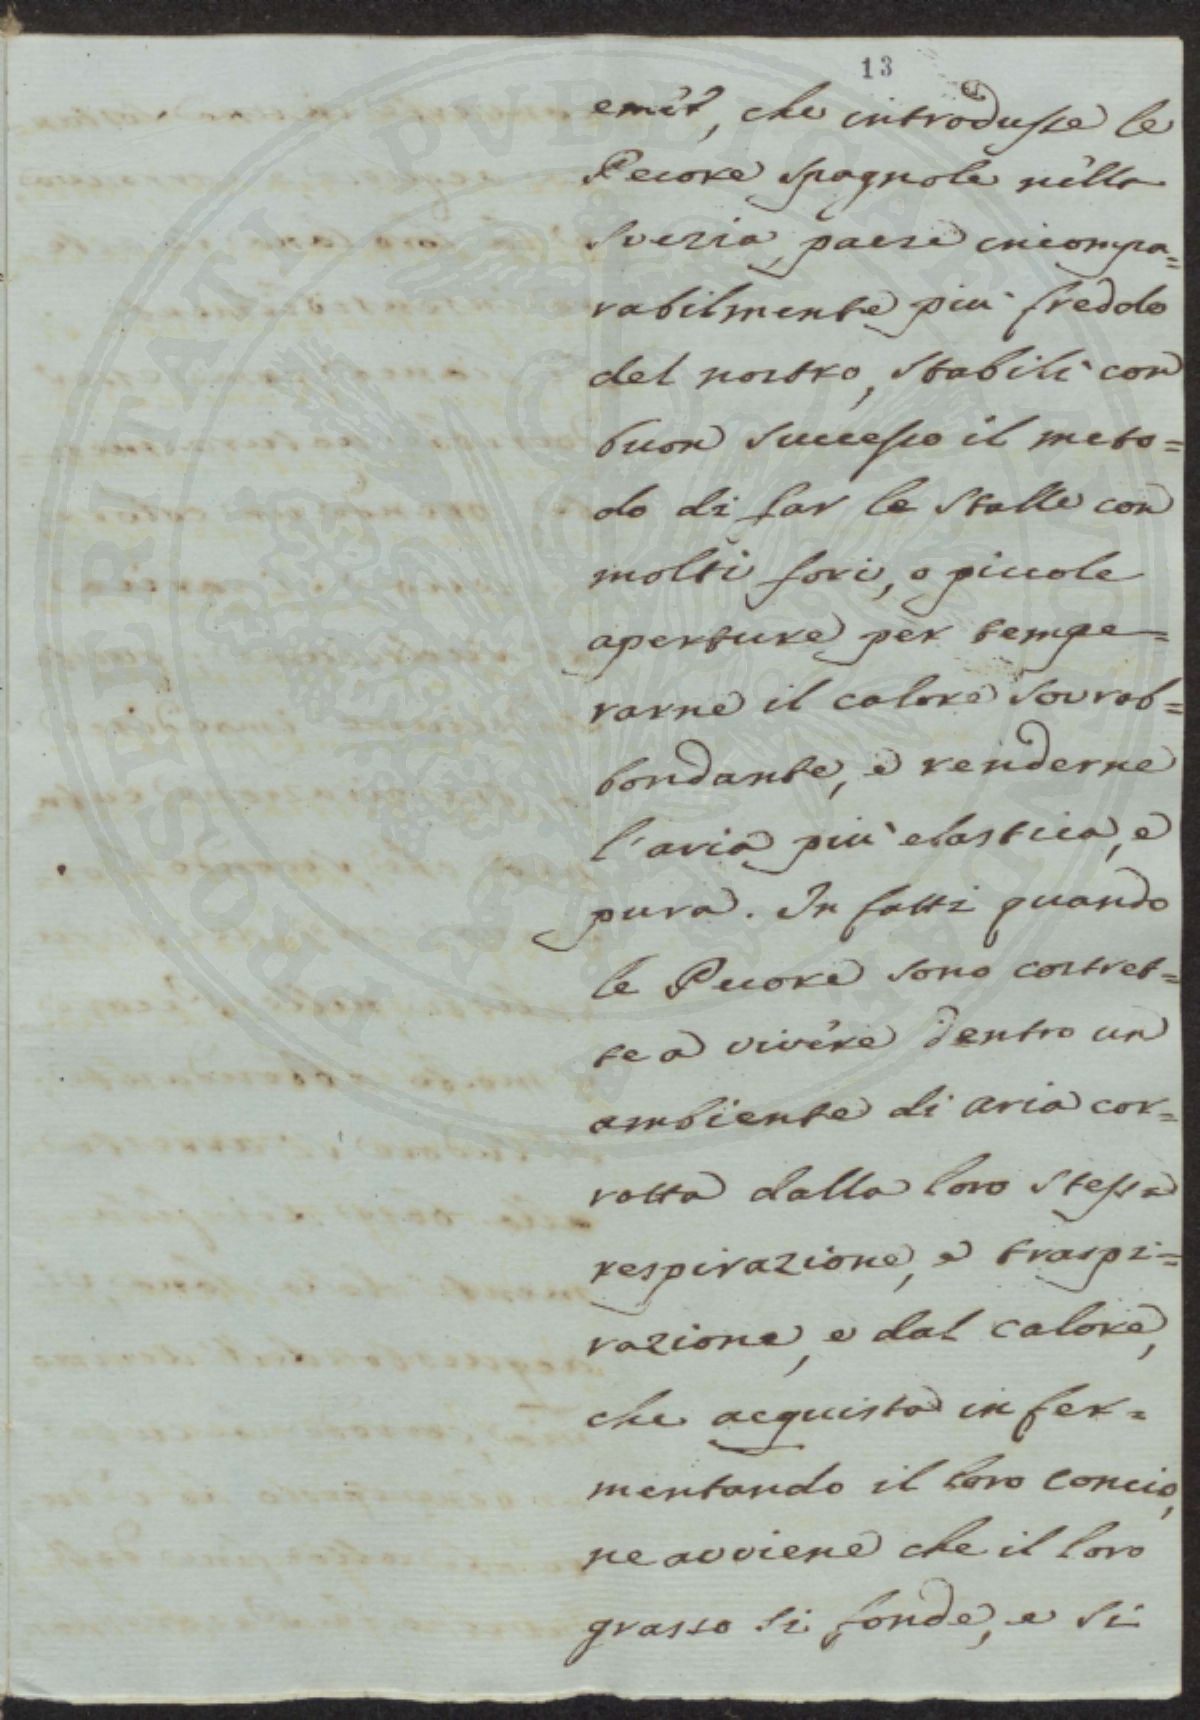 13
emêt, che introdusse le
Pecore spagnole nella
Svezia, paese incompa=
rabilmente più freddo
del nostro, stabilì con
buon successo il meto=
do di far le stalle con
molti fori, o piccole
aperture per tempe=
rarne il calore sovrab=
bondante, e renderne
l'aria più elastica, e
pura. In fatti quando
le Pecore sono costret=
te a vivere dentro un
ambiente di aria cor=
rotta dalla loro stessa
respirazione, e traspi=
razione, e dal calore,
che acquista in fer=
mentando il loro concio,
ne avviene che il loro
grasso si fonde, e si
PROSPERITATI PUBLICAE AUGENDAE